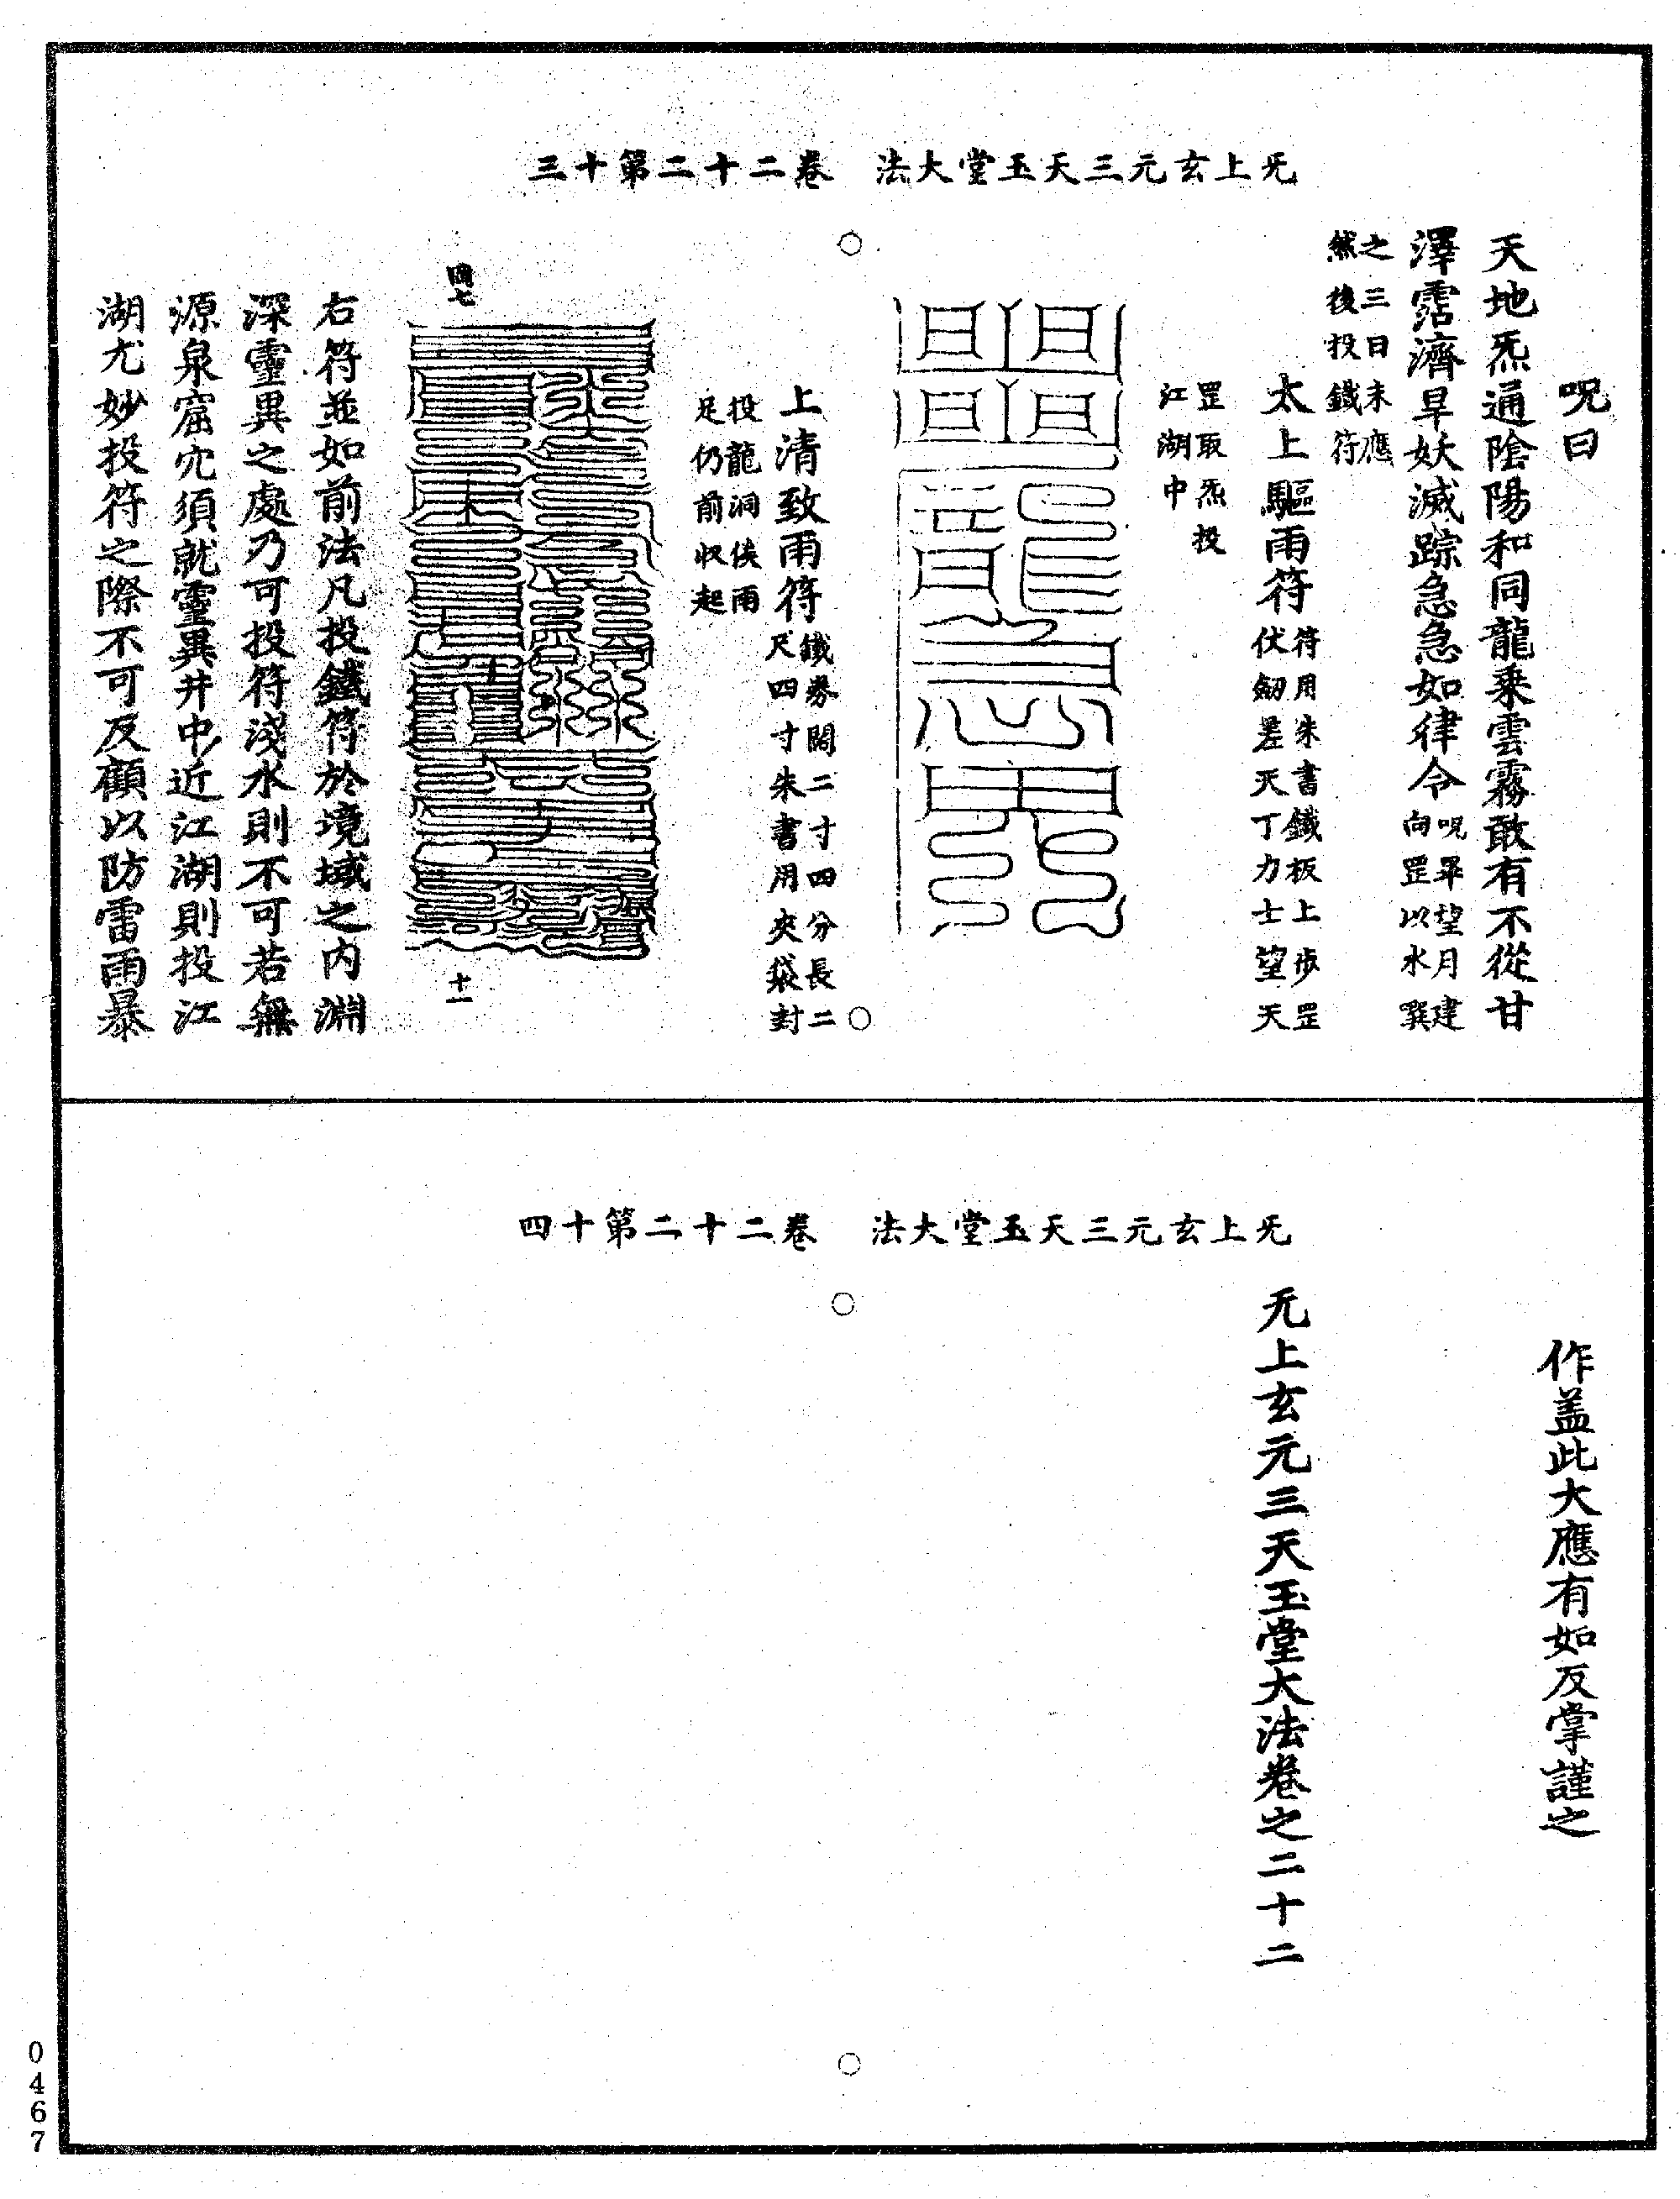 无上玄元三天玉堂大法　卷二十二第十三
呪曰
天地炁通陰陽和同龍乘雲霧敢有不從甘
澤霑濟旱妖滅踪急急如律令呪畢望月建向罡以水噀
之三日未應然後投鐵符
太上驅雨符符用朱書鐵板上步罡伏劒差天丁力士望天
罡取炁投江湖中
上清致雨符鐵券闊二寸四分長二尺四寸朱書用夾袋封
投龍洞俟雨足仍前収起
四七
十一
右符並如前法凡投鐵符於境域之内淵
深靈異之處乃可投符淺水則不可若無
源泉窟穴須就靈異井中近江湖則投江
湖尤妙投符之際不可反顧以防雷雨暴
无上玄元三天玉堂大法　卷二十二第十四
作盖此大應有如反掌謹之
无上玄元三天玉堂大法卷之二十二
0467